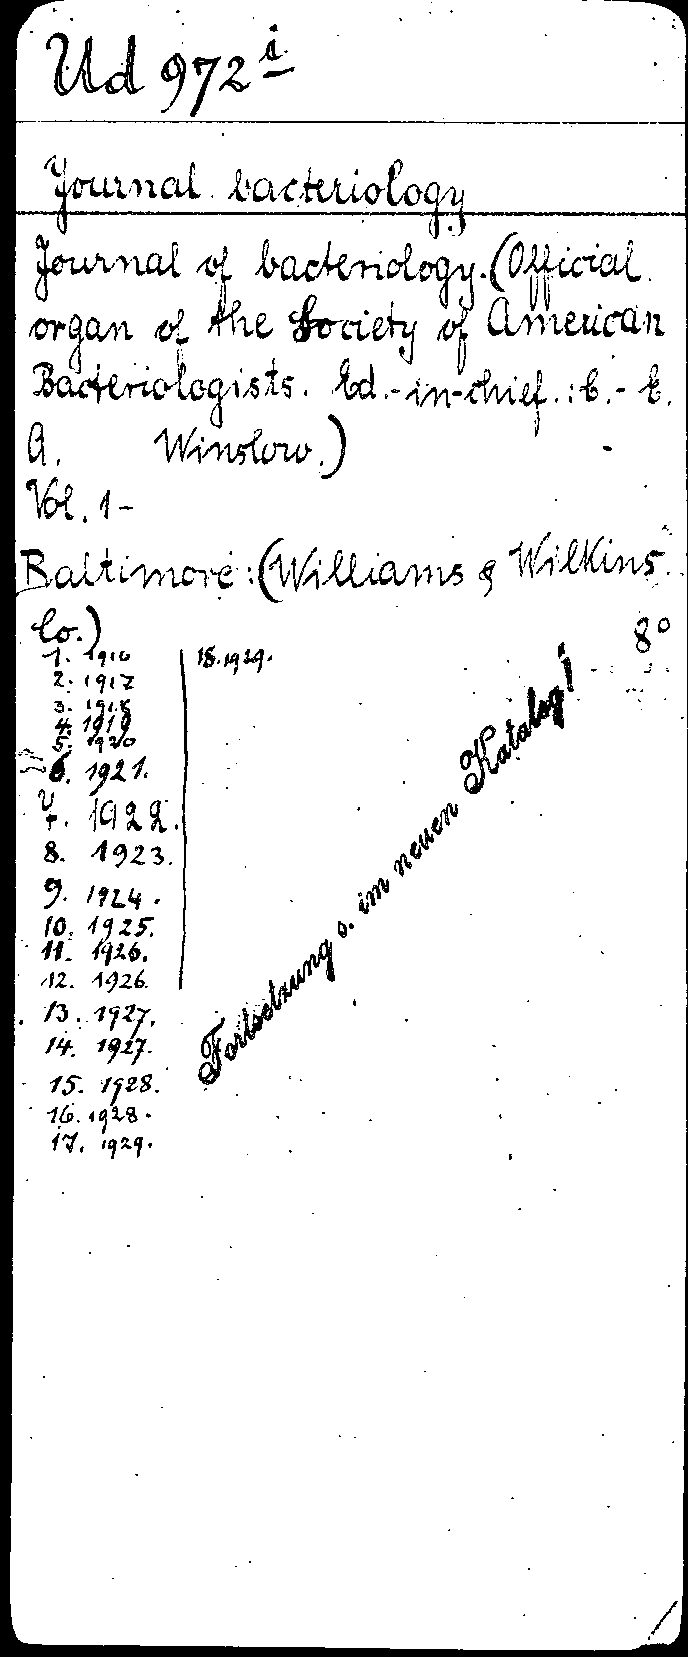 Ud 972 i
Journal bacteriology
Journal of bacteriology. (Official
organ of the Society of American
Bacteriologists. Ed.-in-chief.: C.-E.
A. Winslow.)
Vol. 1-
Baltimore: (Williams & Wilkins
Co.) 8°
1. 1916
2. 1917
3. 1918
4. 1919
5. 1920
6. 1921.
7. 1922.
8. 1923.
9. 1924.
10. 1925.
11. 1926.
12. 1926.
13. 1927.
14. 1927.
15. 1928.
16. 1928.
17. 1929.
18. 1929.
Fortsetzung s. im neuen Katalog!